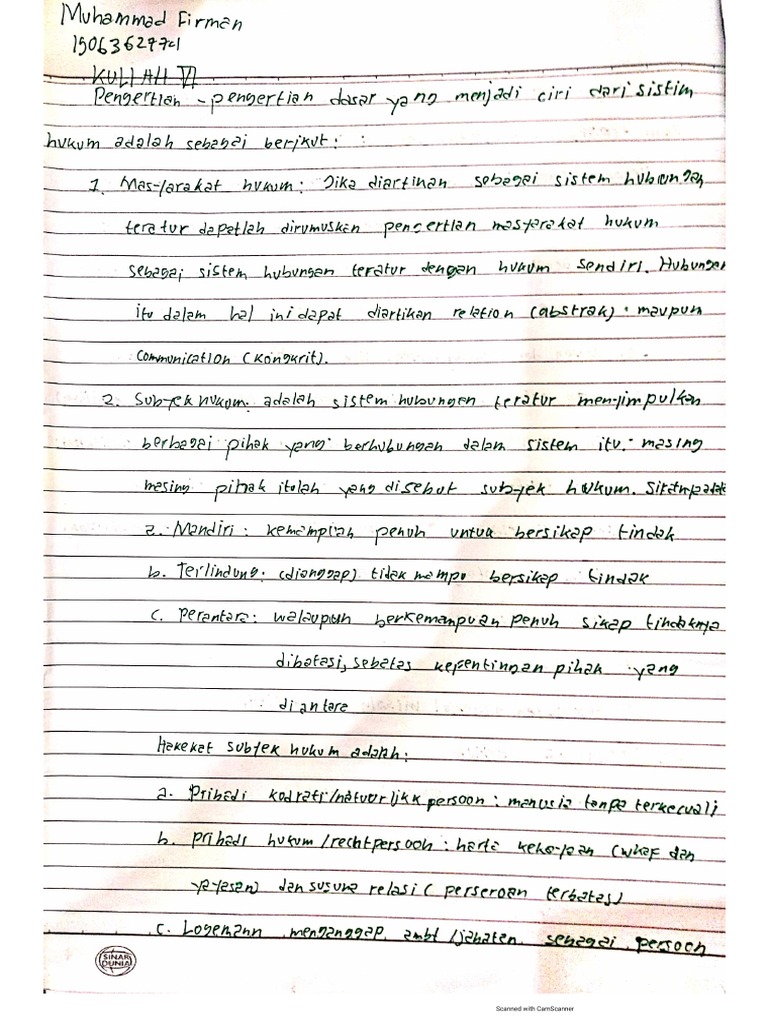 Muhammad Firman
1506362774
KULIAH VI
Pengertian - pengertian dasar yang menjadi ciri dari sistim
hukum adalah sebagai berikut :
1. Masyarakat hukum : Jika diartinan sebagai sistem hubungan
teratur dapatlah dirumuskan pengertian masyarakat hukum
sebagai sistem hubungan teratur dengan hukum sendiri. Hubungan
itu dalam hal ini dapat diartikan relation (abstrak) maupun
communication (kongkrit).
2. Subyek hukum: adalah sistem hubungan teratur menyimpulkan
berbagai pihak yang berhubungan dalam sistem itu. masing
masing pihak itulah yang disebut subyek hukum. Sifatnya adalah
a. Mandiri : kemampuan penuh untuk bersikap tindak
b. Terlindung: (dianggap) tidak mampu bersikap tindak
c. Perantara: walaupun berkemampuan penuh sikap tindaknya
dibatasi, sebatas kepentingan pihak yang
diantara
Hakekat subjek hukum adalah:
a. Pribadi kodrati/natuurlijkk persoon : manusia tanpa terkecuali
b. Pribadi hukum/rechtpersoon : harta kekayaan (wkaf dan
yayasan) dan susuna relasi (perseroan terbatas)
c. Logemann menganggap ambt /jabaten sebagai persoon
SINAR
DUNIA
Scanned with CamScanner